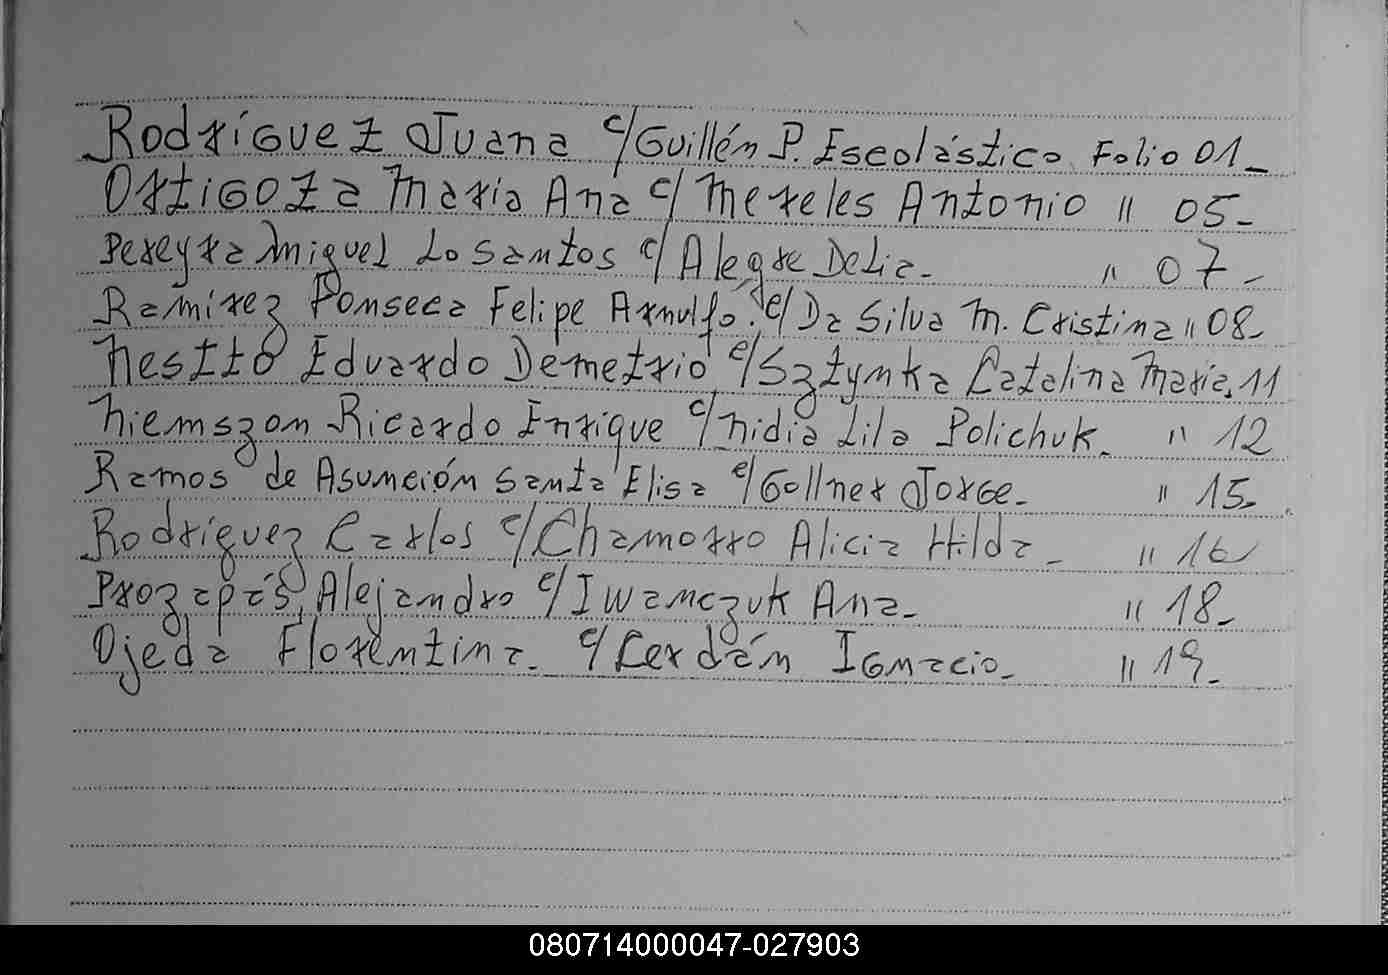 Rodríguez Juana c/Guillén P. Escolástico Folio 01_
Ortigoza Maria Ana c/ Mereles Antonio " 05-
Pereyra Miguel Lo Santos c/ Alegre Delia- " 07-
Ramirez Fonseca Felipe Arnulfo. c/ Da Silva M. Cristina " 08-
Eduardo Demetrio c/ Sztynka Catalina Maria, 11
Niemszon Ricardo Enrique c/ Nidia Lila Polichuk- " 12
Ramos de Asunción Santa Elisa c/ Gollner Jorge- " 15-
Rodríguez Carlos c/ Chamorro Alicia Hilda- " 16
Alejandro c/ Iwanczuk Ana- " 18-
Ojeda Florentina- c/ Cerdán Ignacio- " 19-
080714000047-027903